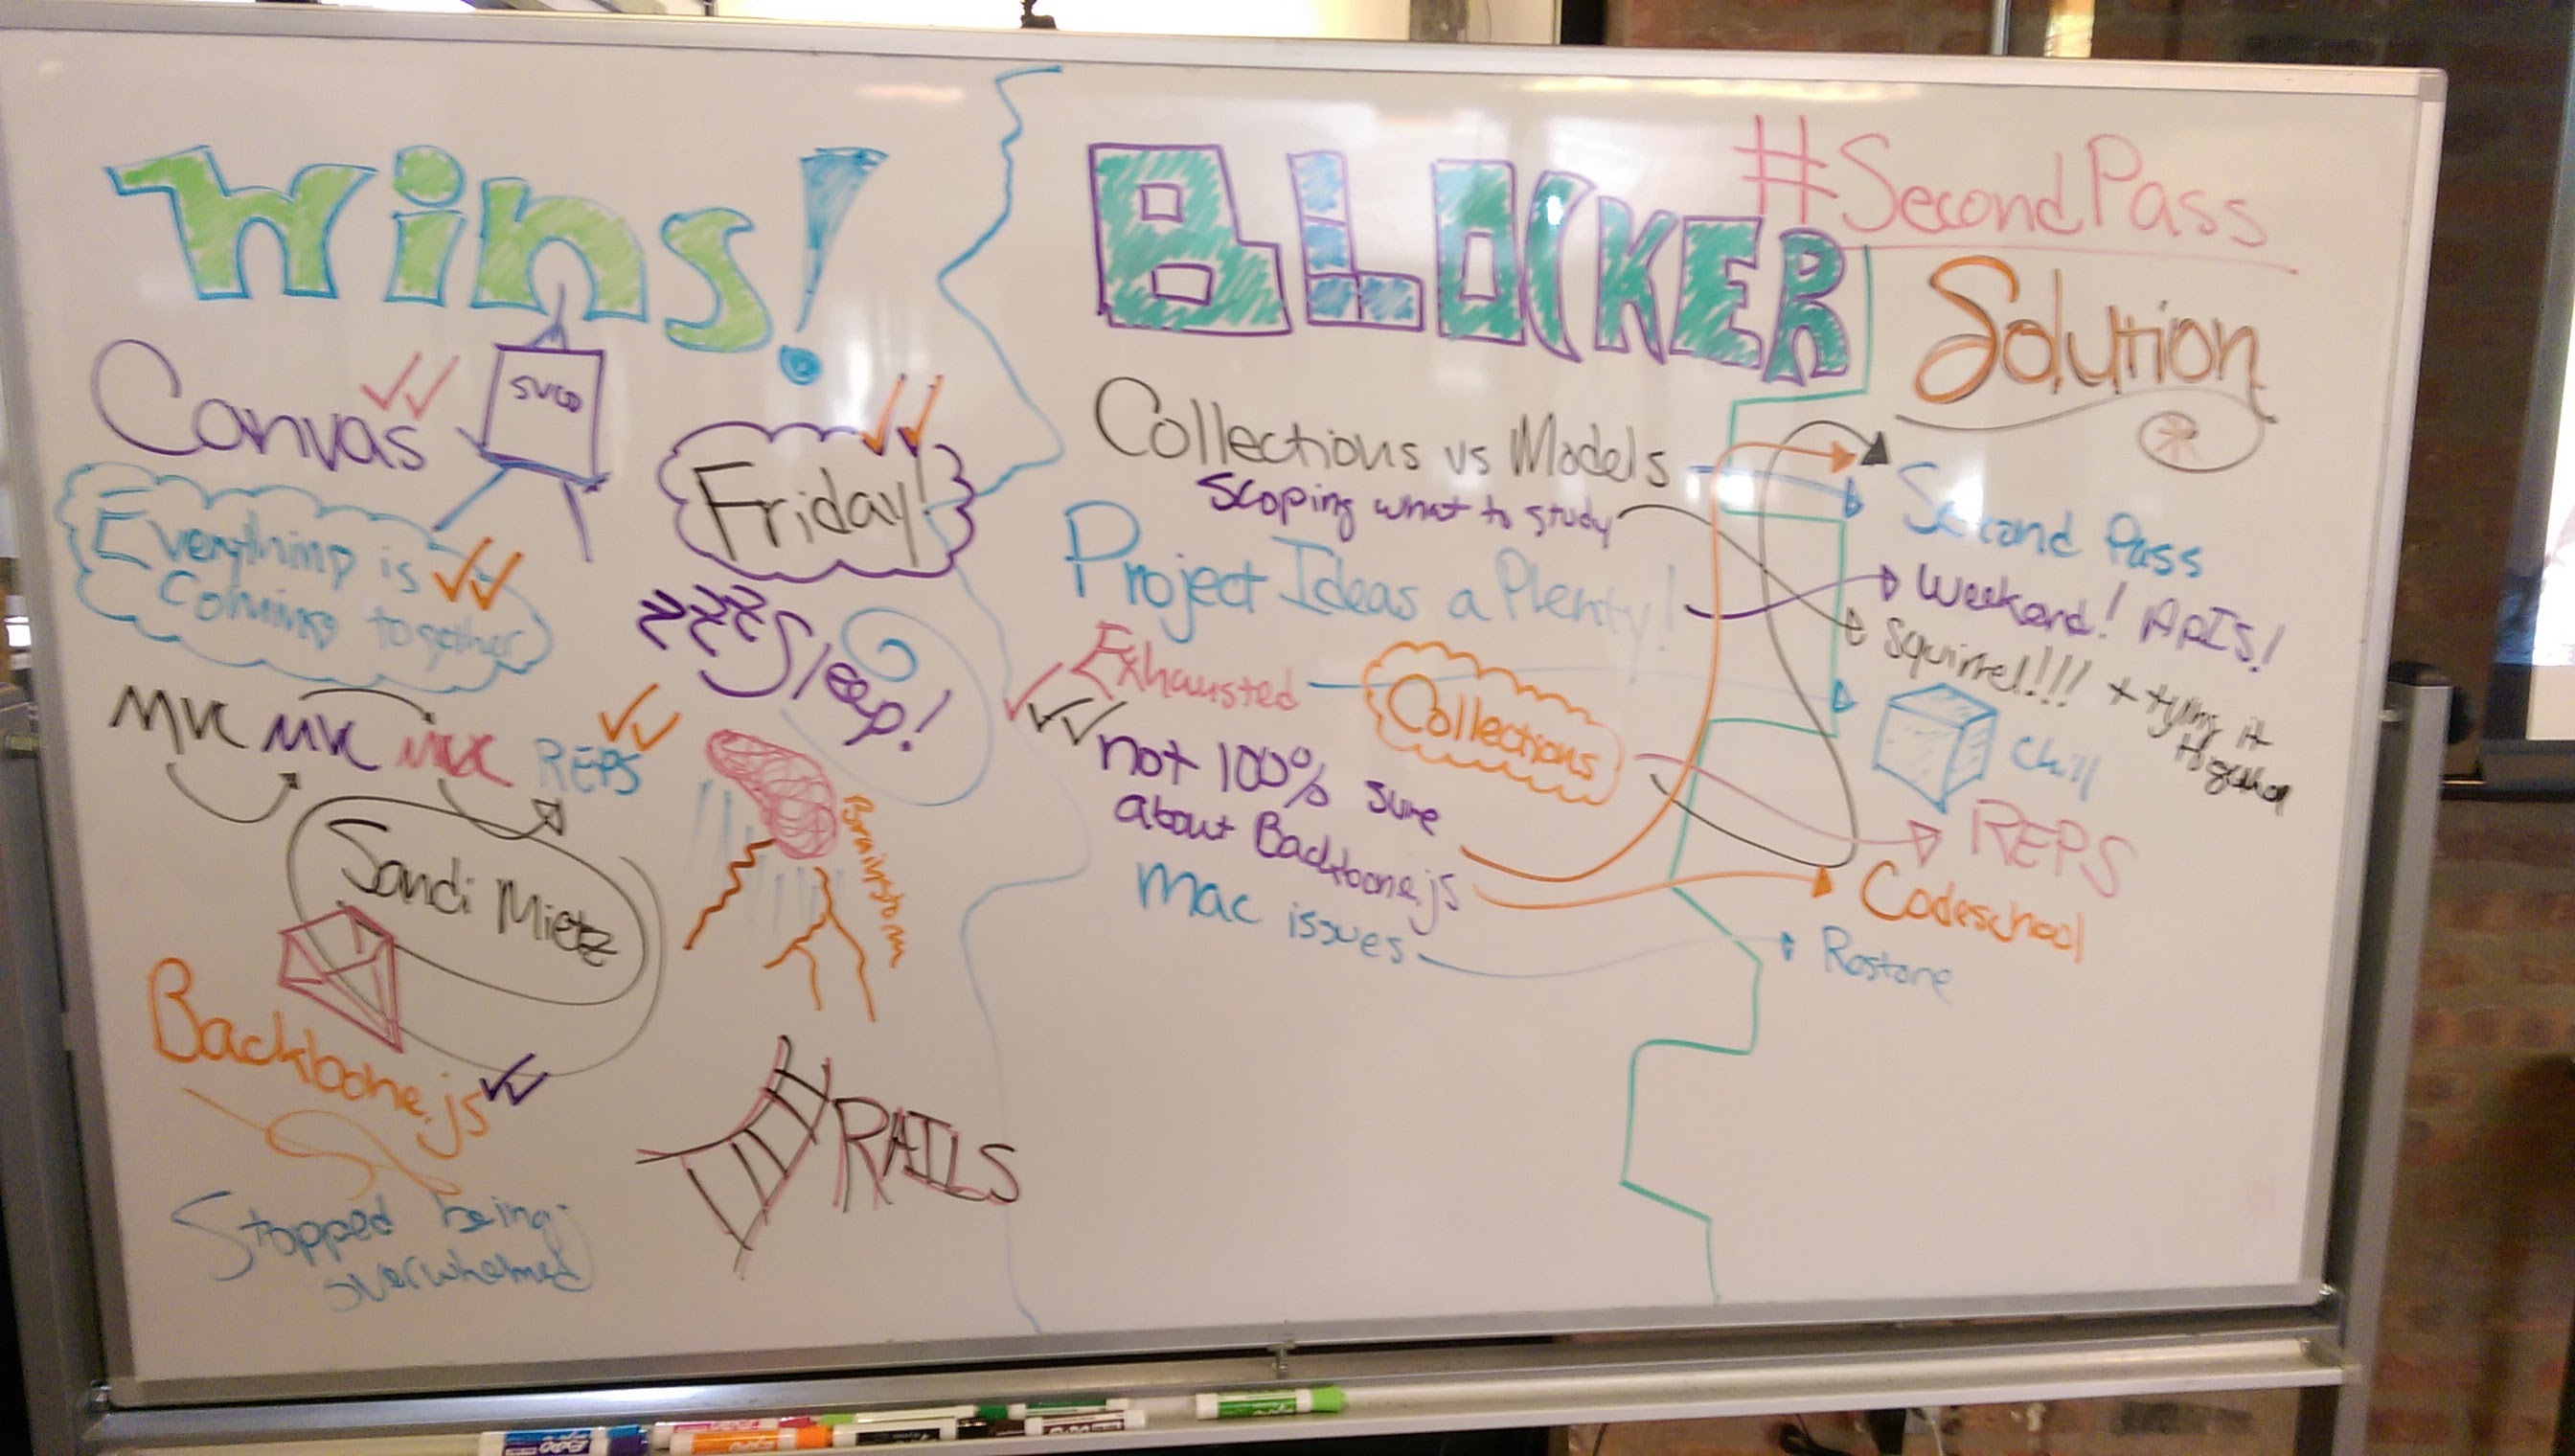 Wins!
Canvas
Friday!
Everything is
Coming together
zzz Sleep!
MVC MVC MVC REPS
Brainstorm
Sandi Mietz
Backbone.js
RAILS
Stopped being
overwhelmed
BLOCKER
Collections vs Models
Scoping what to study
Project Ideas a Plenty!
Exhausted
Collections
not 100% sure
about Backbone.js
Mac issues
#SecondPass
Solution
Second Pass
Weekend! APIs!
Squirrel!!! + tying it
together
Chill
REPS
Codeschool
Restore